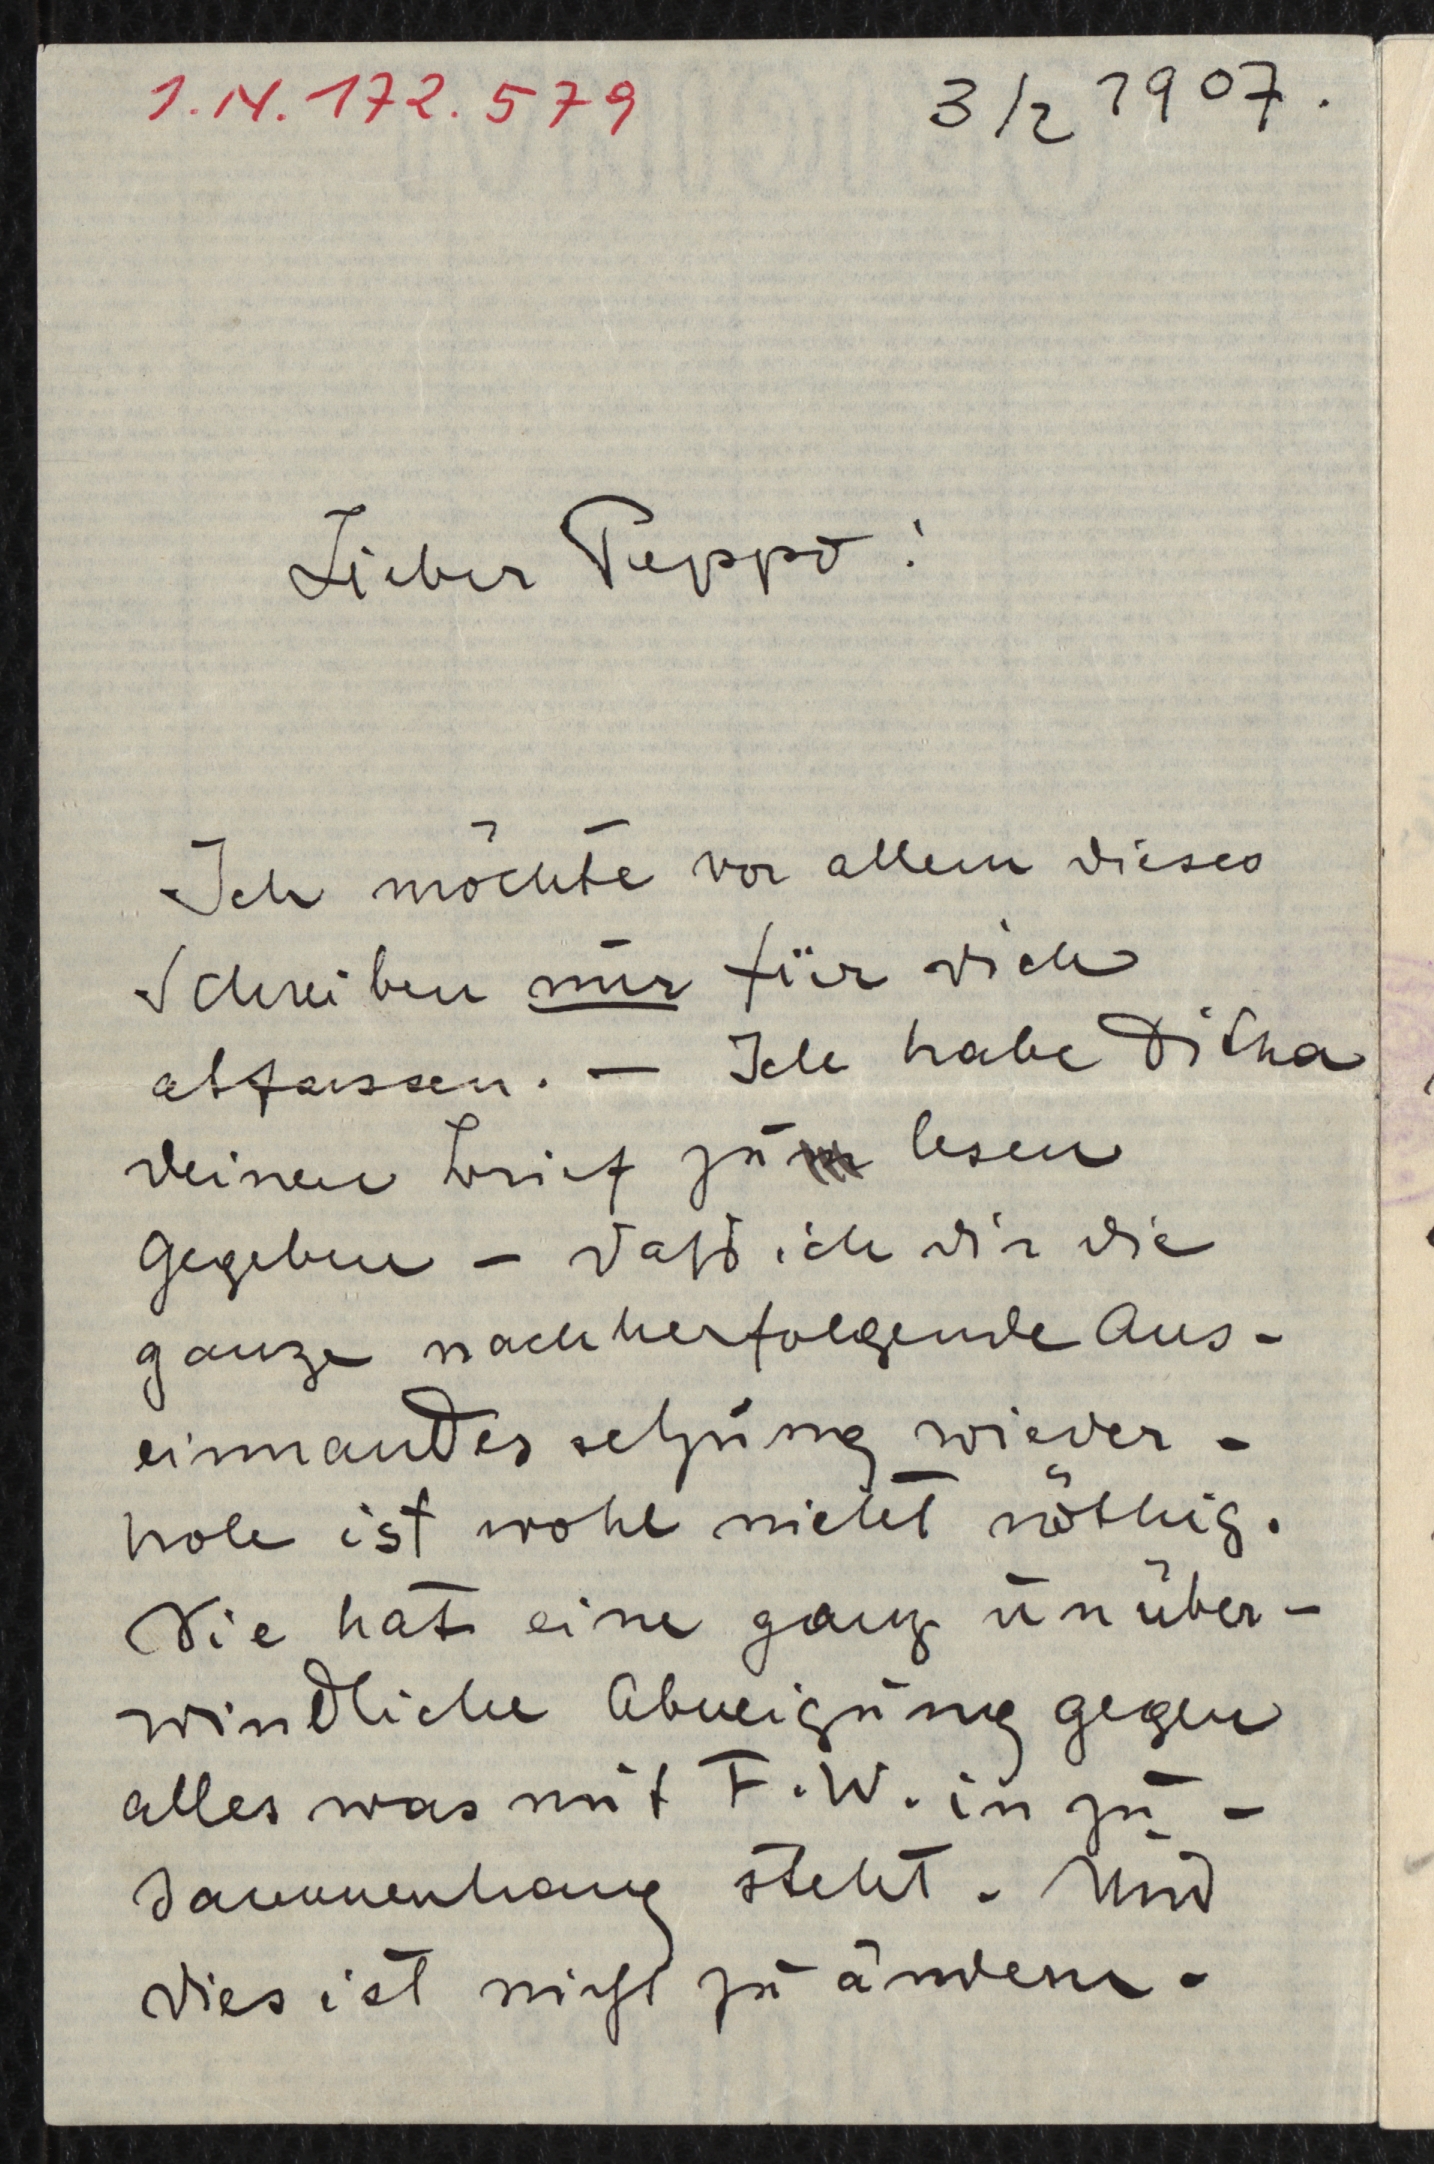 I.N. 172.579
3/2 1907.
Lieber Peppo!
Ich möchte vor allem dieses
Schreiben nur für dich
abfassen. — Ich habe Ditha
deinen Brief zum lesen
gegeben – daß ich dir die
ganze nachherfolgende Aus-
einnandersetzung wieder-
hole ist wohl nicht nöthig.
Sie hat eine ganz unüber-
windliche Abneigung gegen
alles was mit F.W. in zu-
sammenhang steht. Und
dies ist nicht zu ändern.